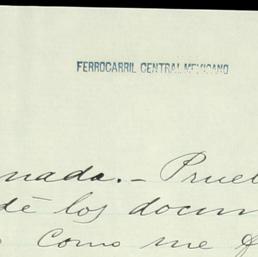 FERROCARRIL CENTRAL MEXICANO
nada.- Prue
dé los docum
como me